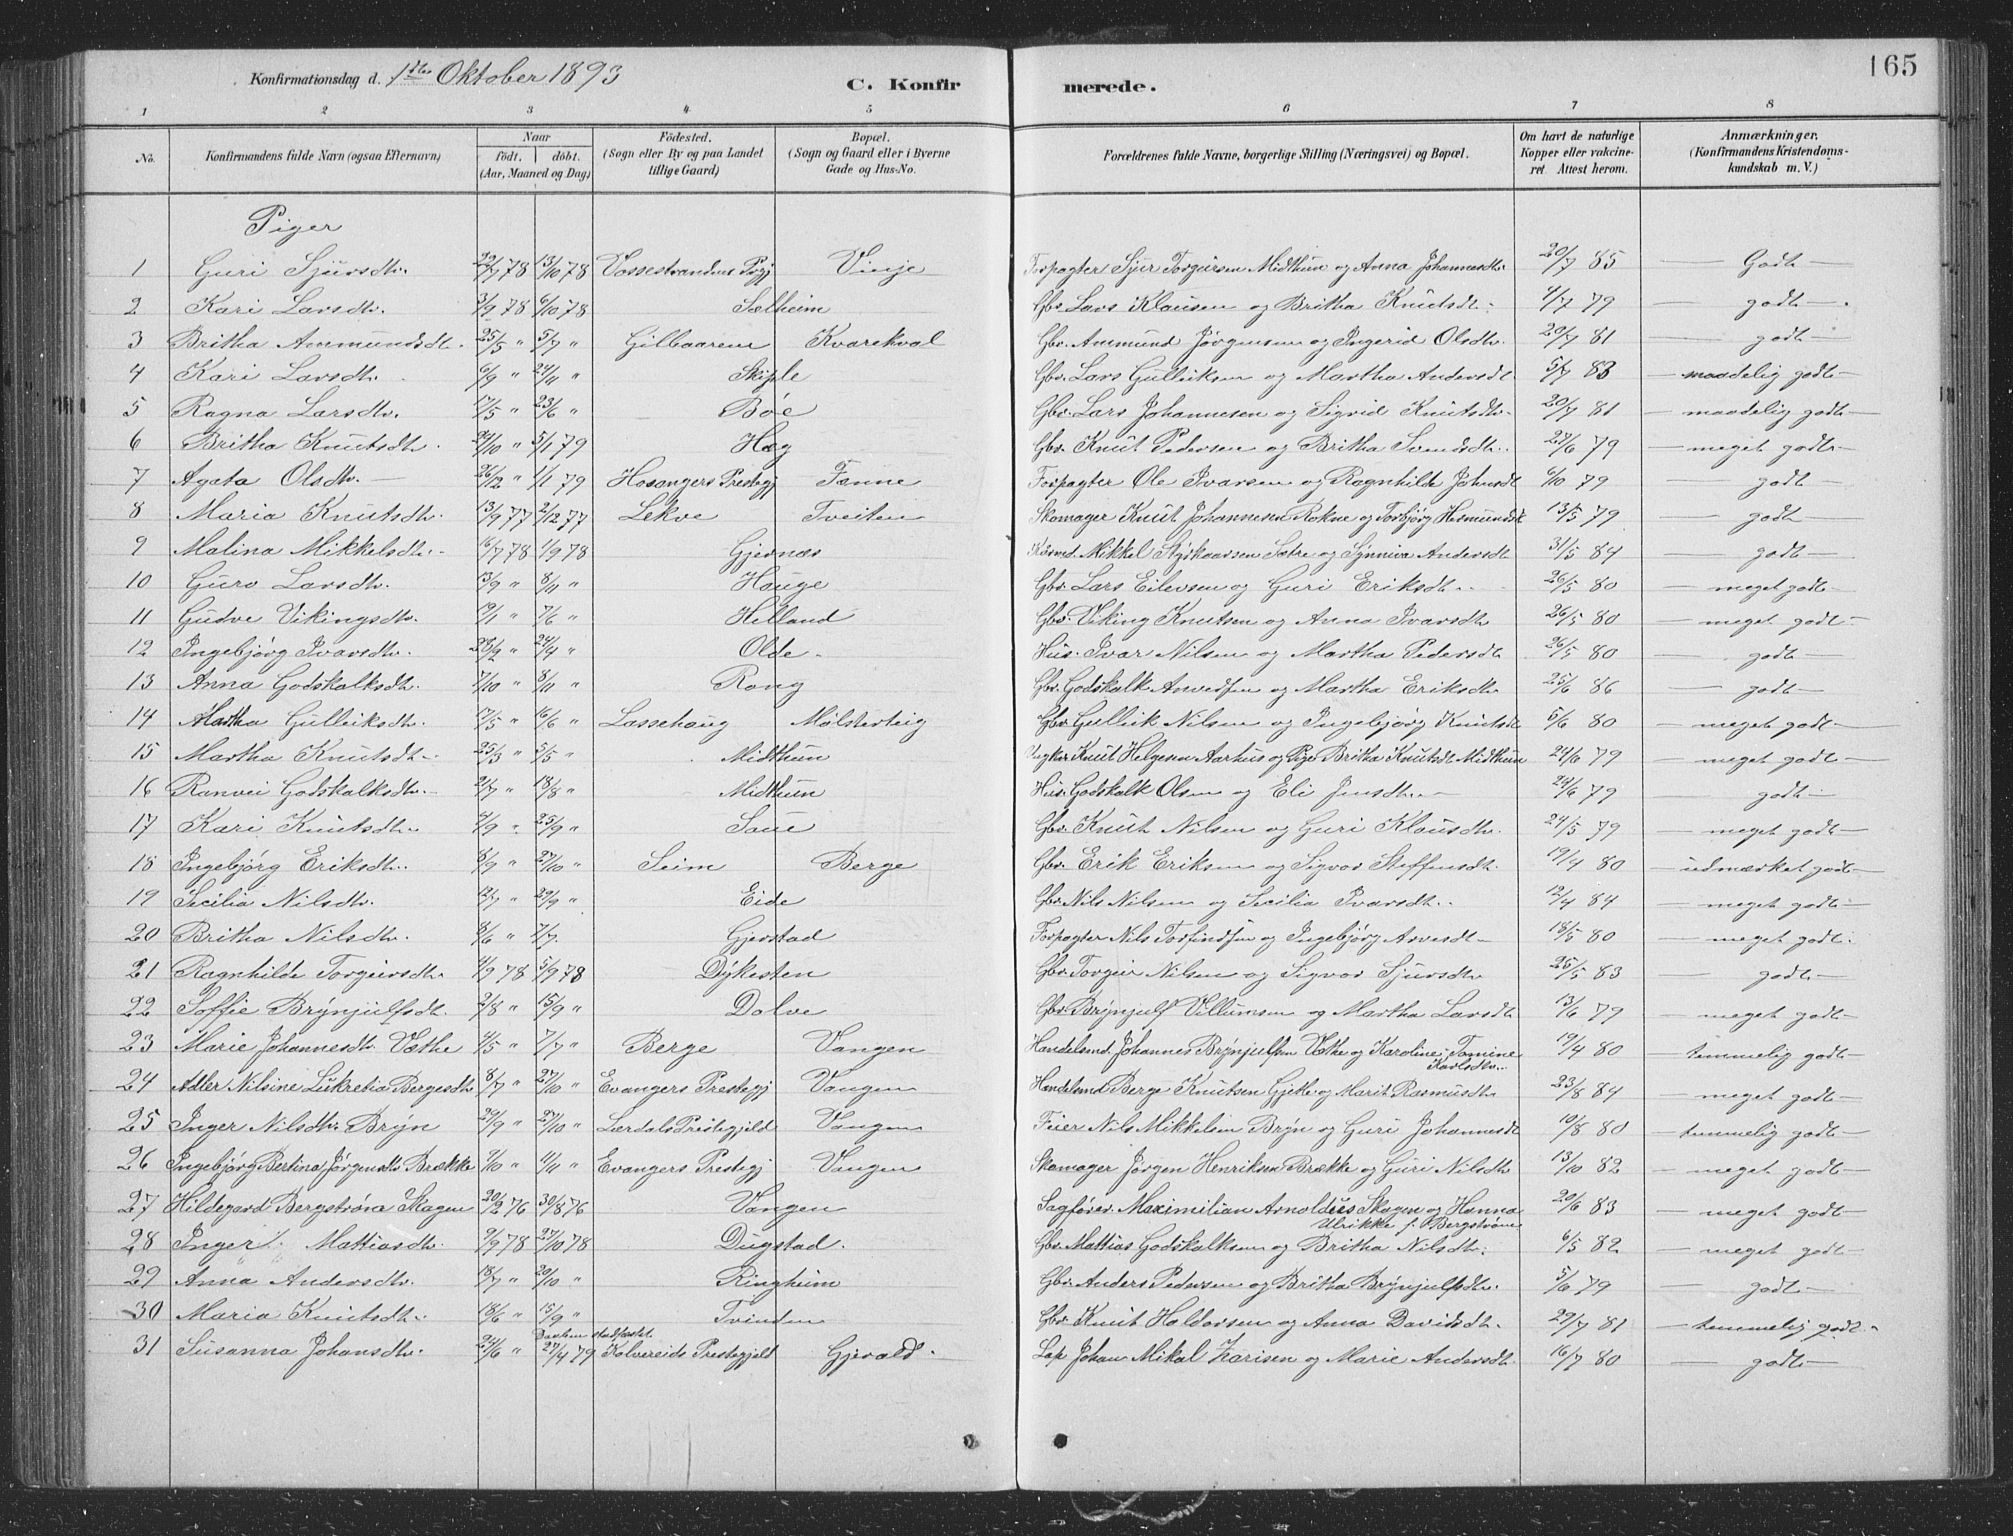 165
Konfirmationsdag d. 1ste Oktober 1893
C. Konfirmerede.
1 2 3 4 5 6 7 8
No. Konfirmandens fulde Navn (ogsaa Efternavn) Naar födt. döbt. (Aar, Maaned og Dag) Födested. (Sogn eller By og paa Landet tillige Gaard) Bopæl. (Sogn og Gaard eller i Byerne Gade og Hus-No. Forældrenes fulde Navne, borgerlige Stilling (Næringsvei) og Bopæl. Om havt de naturlige Kopper eller vakcineret. Attest herom. Anmærkninger. (Konfirmandens Kristendomskundskab m. V.)
Piger
1 Guri Sjursdtr. 22/7 78 13/10 78 Vossestrandens Prgj Vinje Forpagter Sjur Torgersen Midthun og Anna Johannesdtr 20/7 85 — Godt —
2 Kari Larsdtr. 3/9 78 6/10 78 Sælheim Gbr. Lars Klausen og Britha Knutsdtr 4/7 79 — godt —
3 Britha Ammundsdtr. 25/5 " 5/7 " Gilbaarene Kvarekval Gbr. Ammund Jørgensen og Ingerid Olsdtr. 20/7 81 — godt —
4 Kari Larsdtr. 6/9 " 24/11 " Skiple Gbr. Lars Gulleiksen og Martha Andersdtr 5/7 83 — maadelig godt —
5 Ragna Larsdtr. 17/5 " 23/6 " Bøe Gbr. Lars Johannesen og Sigrid Knutsdtr. 20/7 81 — maadelig godt —
6 Britha Knutsdtr. 24/10 " 5/1 79 Hæg Gbr. Knut Pedersen og Britha Svendsdtr. 27/6 79 — meget godt —
7 Agata Olsdtr. — 26/12 " 1/1 79 Hosangers Prestegj Fænne Forpagter Ole Ivarsen og Ragnhilde Johnsdt 6/10 79 — godt —
8 Maria Knutsdtr. 13/9 77 2/12 77 Lekve Tveiten Skomager Knut Johannesen Rokne og Torbjørg Hermundsdt 13/5 79 — godt —
9 Malina Mikkelsdtr. 6/7 78 1/9 78 Gjernæs Mikkel Styrkaarsen Sætre og Synneva Andersdt 31/5 84 — godt —
10 Guro Larsdtr. 13/9 " 8/11 " Hauge Gbr. Lars Eilevsen og Guri Eriksdt. 26/5 80 — meget godt —
11 Gudve Vikingsdtr. 19/1 " 7/6 " Helland Gbr. Viking Knutsen og Anna Ivarsdtr 26/5 80 — meget godt —
12 Ingebjørg Ivarsdtr. 28/2 " 24/4 " Olde. Hus. Ivar Nilsen og Martha Pedersdt 26/5 80 — godt —
13 Anna Godskalksdtr. 7/10 " 8/11 " Rong Gbr. Godskalk Anvedsen og Martha Eriksdtr. 25/6 86 — godt —
14 Martha Gulleiksdtr. 17/5 " 16/6 " Lassehaug Mølsterteig Gbr. Gulleik Nilsen og Ingebjørg Knutsdt 5/6 80 — meget godt —
15 Martha Knutsdtr. 25/3 " 5/5 " Midthun Ungkar Knut Helgesen Aarhus og Pige Britha Knutsdt Midthun 24/6 79 — meget godt —
16 Ranvei Godskalksdtr. 2/7 " 18/8 " Midthun Hus. Godskalk Olsen og Eli Jensdtr. 24/6 79 — godt —
17 Kari Knutsdtr. 4/9 " 25/9 " Saue Gbr. Knut Nilsen og Guri Klausdtr. 24/5 79 — meget godt —
18 Ingebjørg Eriksdtr. 8/9 " 27/10 " Seim Berge Gbr. Erik Eriksen og Sigvor Steffensdt. 19/4 80 — udmærket godt —
19 Secilia Nilsdtr. 12/7 " 29/9 " Eide Gbr. Nils Nilsen og Secilia Ivarsdt. 12/4 84 — meget godt —
20 Britha Nilsdtr. 8/6 " 7/7. Gjerstad Forpagter Nils Torfindsen og Ingebjørg Arvesdt 18/5 80 — meget godt.
21 Ragnhilde Torgeirsdtr. 4/9 78 5/9 78 Dykesten Gbr. Torgeir Nilsen og Sigvor Sjursdtr 25/5 83 — godt —
22 Soffie Brynjulfsdt. 2/8 " 15/9 " Dolve Gbr. Brynjulf Villumsen og Martha Larsdt 13/6 79 — meget godt —
23 Marie Johannesdtr. Væthe 4/5 " 7/7 " Berge Vangen Handelsmd. Johannes Brynjulfsen Væthe og Karoline Tomine Karlsdtr. 19/4 80 — temmelig godt —
24 Adler Nilsine Lukretia Bergesdtr 8/7 " 27/10 " Evangers Prestegj Vangen Handelsmd Berge Knutsen Gjelle og Marit Rasmusdtr 23/8 84 — meget godt —
25 Inger Nilsdtr. Bryn 29/9 " 27/10 " Lærdals Prestegjeld Vangen Feier Nils Mikkelsen Bryn og Guri Johannesdt 10/8 80 — temmelig godt —
26 Ingebjørg Bertina Jørgensdtr Brække 2/10 " 4/11 " Evangers Prestegj Vangen Skomager Jørgen Henriksen Brække og Guri Nilsdtr 13/10 82 — meget godt —
27 Hildegard Bergstrøm Skagen 20/2 76 30/8 76 Vangen Sagfører Maximilian Arnoldus Skagen og Hanna Ulrikke f. Bergstrøm 20/6 83 — meget godt —
28 Inger Mattiasdtr. 9/9 78 27/10 78 Dugstad. Gbr. Mattias Godskalksen og Britha Nilsdtr. 6/5 82 — meget godt —
29 Anna Andersdtr. 18/7 " 20/10 " Ringheim Gbr. Anders Pedersen og Britha Brynjulfsdtr. 5/6 79 — godt —
30 Maria Knutsdtr. 18/6 " 15/9 " Tvinden Gbr. Knut Haldorsen og Anna Davidsdt. 29/7 81 — temmelig godt.
31 Susanna Johansdtr. 24/6 " Daaben stadfæstet 27/4 79 Kolvereids Prestegjeld Gjerald. Lap Johan Mikal Zarisen og Marie Andersdt. 16/7 80 — godt —